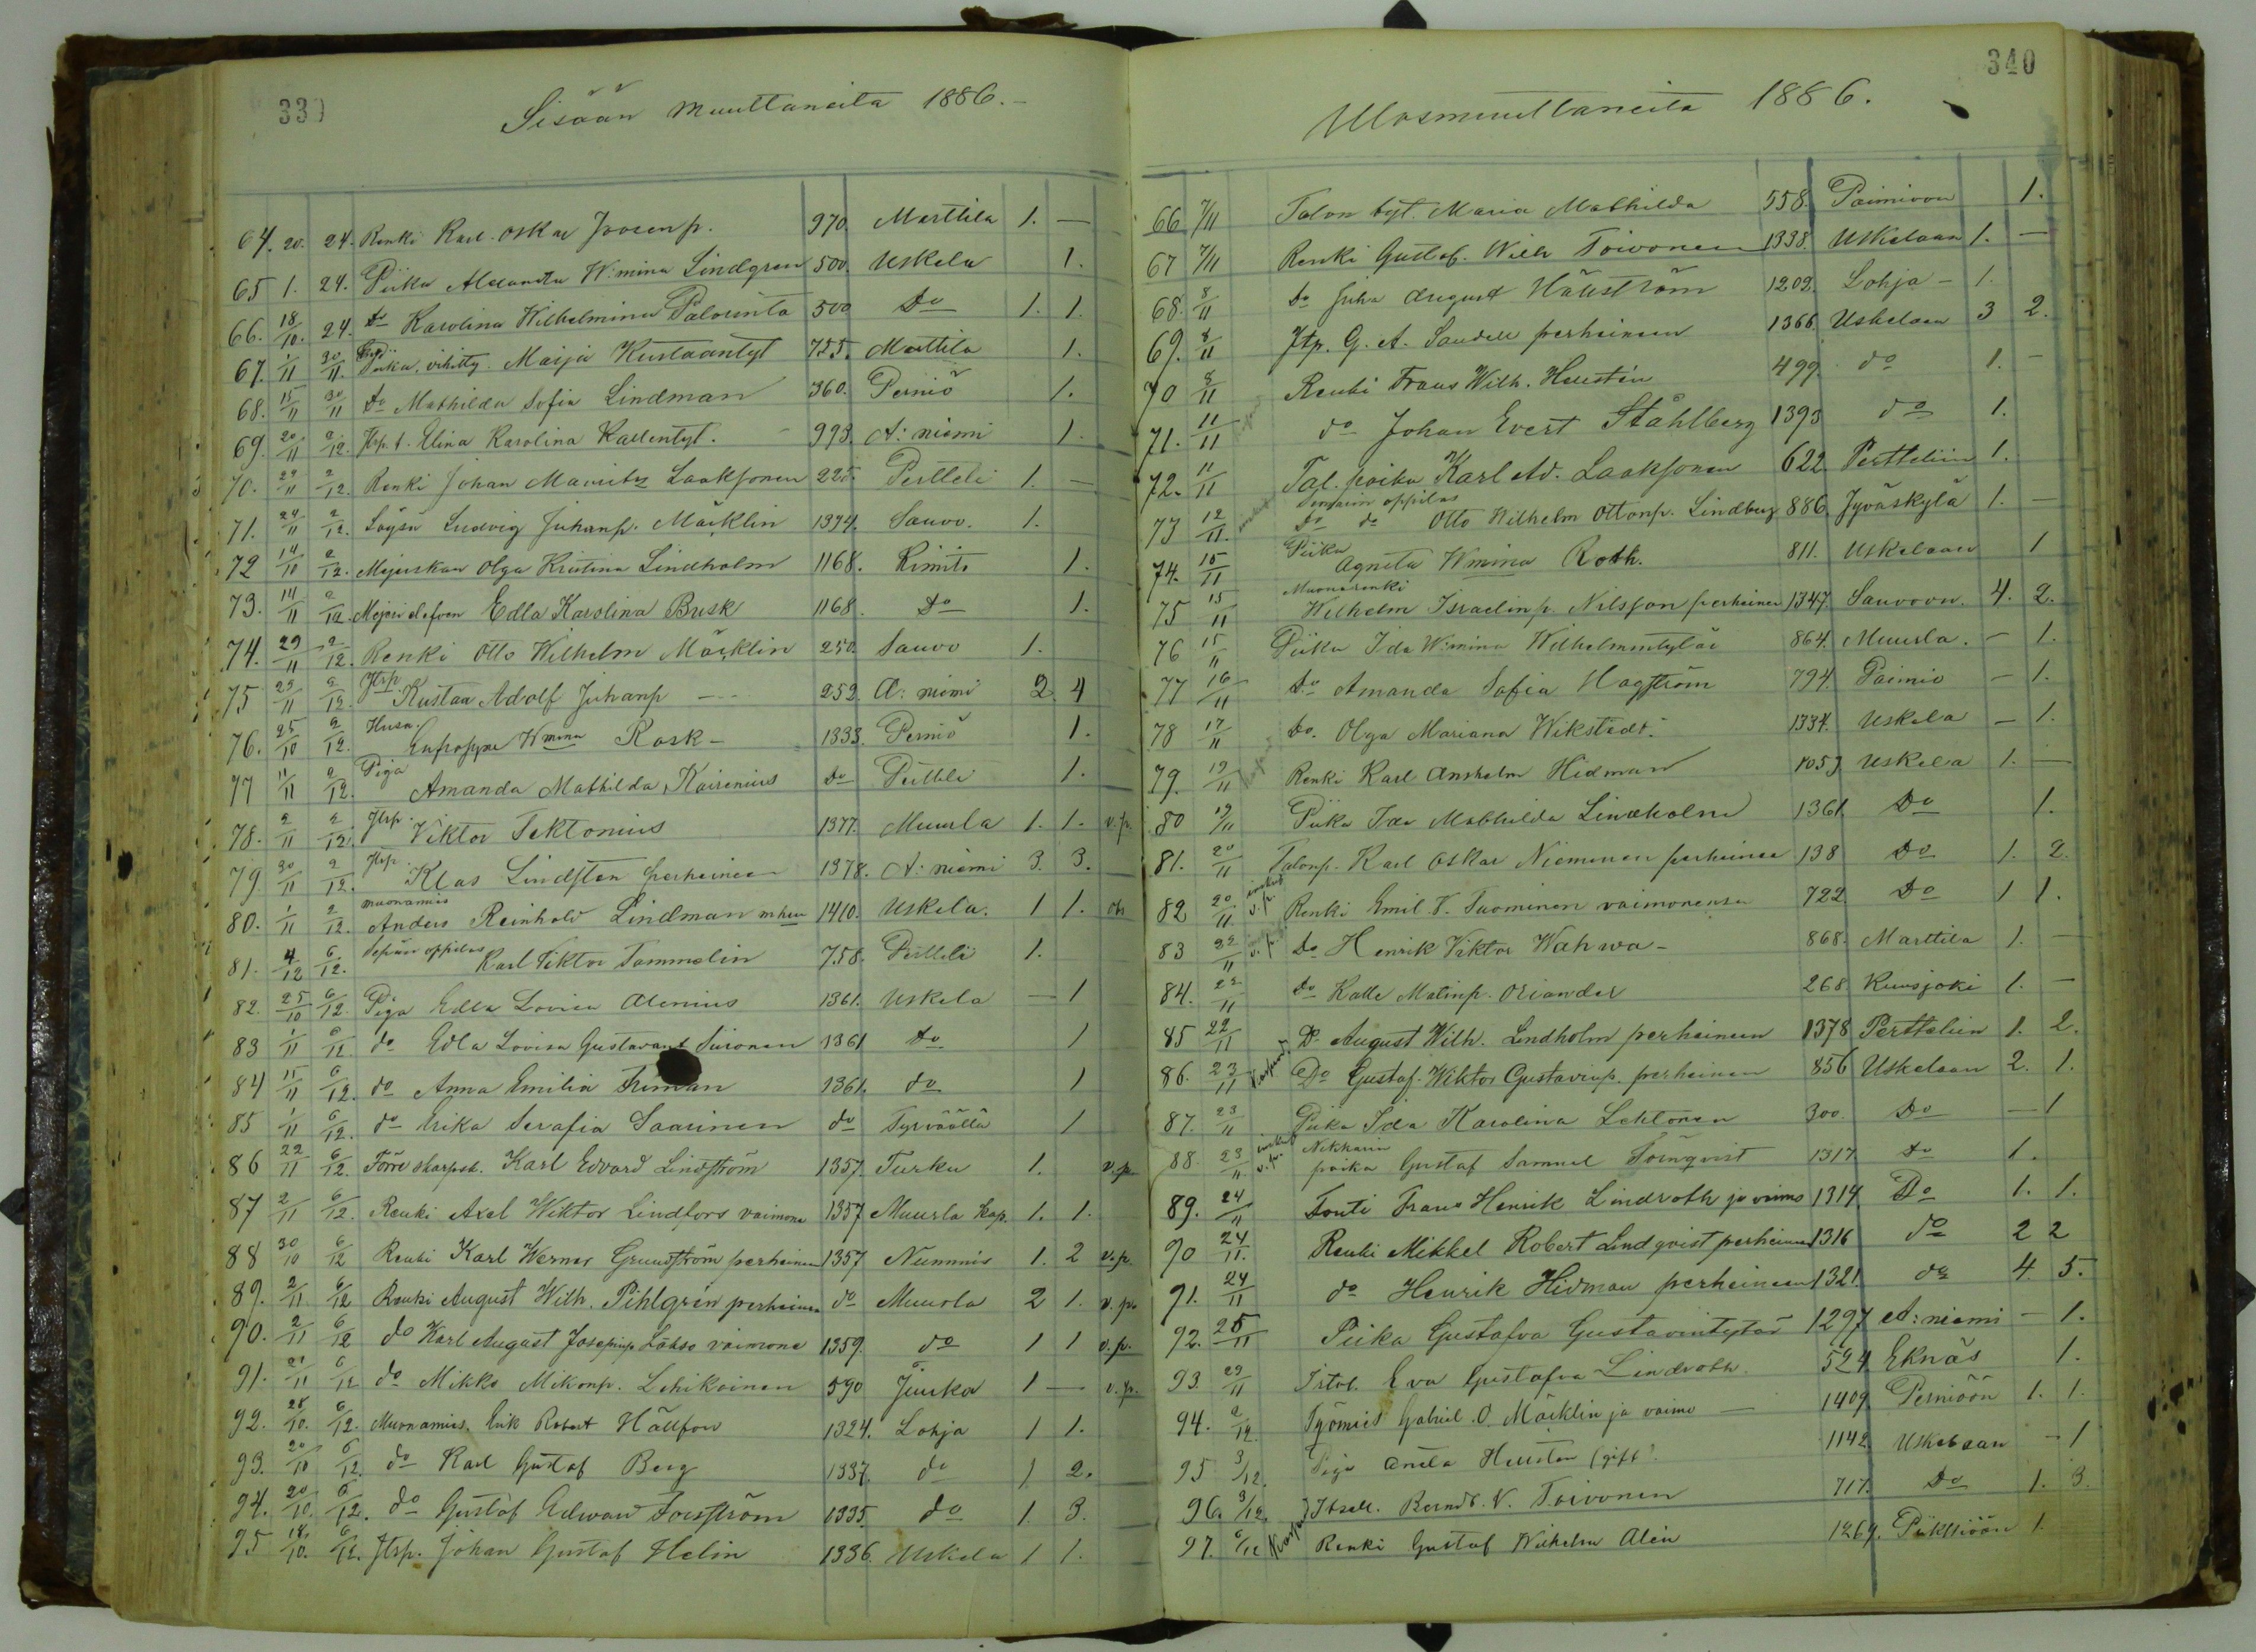 339
Sisään muuttaneita 1886.-
64. 20. 24. Renki Karl Oskar Joosenp. 970. Marttila 1. —
65 1. 24. Piika Alexandra W:mina Lindgren 500. Uskela 1.
66. 18/10. 24. do Karolina Wilhelmina Palorinta 500 Do 1. 1.
67. 1/11 30/11. Piika, vihitty. Maija Kustaantyt 755. Marttila 1.
68. 15/11 30/11 do Mathilda Sofia Lindman 360. Perniö 1.
69. 20/11 2/12. Itsp. t. Elina Karolina Kallentyt. 993. A:niemi 1.
70. 29/11 2/12. Renki Johan Mauritz Laaksonen 225. Pertteli 1. —
71. 24/11 2/12. Loysä Ludvig Juhanp. Mäcklin 1394. Sauvo. 1.
72 14/10 2/12. Mejerskan Olga Kristina Lindholm 1168. Kimito 1.
73. 14/11 2/12. Mejeri elefven Edla Karolina Busk 1168. Do 1.
74. 29/11 2/12. Renki Otto Wilhelm Mäcklin 250. Sauvo 1.
75 23/11 2/12. Itsp. Kustaa Adolf Juhanp — 252. A:niemi 2. 4
76. 25/10 2/12. Husa. Eufrosyne Wmina Rosk - 1333. Perniö 1.
77 11/11 2/12. Piga Amanda Mathilda Kairenius do Pertteli 1.
78. 2/11 2/12. Itsp. Viktor Tektonius 1377. Muurla 1. 1. v.p.
79. 30/11 2/12. Itsp. Klas Lindsten perheineen 1378. A:niemi 3. 3.
80. 1/11 2/12. muonamies Anders Reinhold Lindman m hu 1410. Uskela. 1 1.
81. 4/12 6/12. Sepän oppilas Karl Viktor Tammelin 758. Pertteli 1.
82. 25/10 6/12. Piga Edla Lovisa Alenius 1361. Uskela — 1
83 1/11 6/12. do Edla Lovisa Gustavant Siironen 1361 Do 1
84 15/11 6/12. do Anna Emilia Friman 1361. do 1
85 1/11 6/12. do Erika Serafia Saarinen do Tyrväällä 1
86 22/11 6/12. Förre skarpsk. Karl Edvard Lindström 1357. Turku 1. v.p.
87 2/11 6/12. Renki Axel Wiktor Lindfors vaimone 1357 Muurla Kap. 1. 1.
88 30/10 6/12 Renki Karl Werner Grundström perheinen 1357 Nummis 1. 2 v.p.
89. 2/11 6/12 Renki August Wilh. Pihlgrén perheinen do Muurla 2 1. v.p.
90. 2/11 6/12 do Karl August Josefinp Lähse vaimone 1359. do 1 1 v.p.
91. 21/11 6/12 do Mikko Mikonp. Lehikoinen 590 Juuka 1 — v.p.
92. 28/10. 6/12. Muonamies. Erik Robert Hällfors 1324. Lohja 1 1.
93. 20/10 6/12. do Karl Gustaf Berg 1337. do 1 2.
94. 20/10. 6/12. do Gustaf Edward Forsström 1335. do 1 3.
95 18/10. 6/12. Itsp. Johan Gustaf Helin 1336. Uskela 1 1.
340
Ulosmuuttaneita 1886.
66 7/11 Talon tyt. Maria Mathilda 558. Paimioon 1.
67 7/11 Renki Gustaf. Wilh Toivonen 1338. Uskelaan 1. —
68. 8/11 Do Juha August Hällström 1202. Lohja - 1.
69. 8/11 Itp. G. A. Sandell perheineen 1366. Uskelaan 3 2.
70 8/11 Renki Frans Wilh. Hellstén 499. do 1. -
71. 11/11 do Johan Evert Ståhlberg 1393 do 1.
72. 11/11 Tal. poika Karl Ad. Laaksonen 622. Pertteliin 1.
73 12/11. Seminin oppilas Do do Otto Wilhelm Ottonp. Lindberg 886. Jyväskylä 1. —
74. 15/11 Piika Agneta Wmina Roth. 811. Uskelaan 1
75 15/11 Muonarenki Wilhelm Israelinp. Nilsson perheinen 1347. Sauvoon. 4. 2.
76 15/11 Piika Ida W:mina Wilhelmintytär 864. Muurla. - 1.
77 16/11 Do Amanda Sofia Hagström 794. Paimio — 1.
78 17/11 Do. Olga Mariana Wikstedt. 1334. Uskela — 1.
79. 19/11 Renki Karl Anshelm Hidman 1053 Uskela 1. —
80 19/11 Piika Ida Mathilda Lindholm 1361. Do 1.
81. 20/11 Talonp. Karl Oskar Nieminen perheinee 138 Do 1. 2.
82 20/11 v.p. Renki Emil V. Tuominen vaimonensa 722. Do 1 1.
83 22/11 v.p. Do Henrik Viktor Wahwa - 868. Marttila 1. —
84. 22/11 do Kalle Matinp. Oriander 268. Kuusjoki 1. —
85 22/11 Do August Wilh. Lindholm perheineen 1378 Pertteliin 1. 2.
86. 23/11 Do Gustaf. Wiktor Gustavinp. perheinen 856 Uskelaan 2. 1.
87. 23/11 Piika Ida Karolina Lehtonen 300. Do — 1
88. 23/11 v.p. Nikkarin poika Gustaf Samuel Törnqvist 1317. do 1.
89. 24/11 Torti Frans Henrik Lindroth ja vaimo 1314. Do 1. 1.
90 24/11. Renki Mikkel Robert Lindqvist perheineen 1316 do 2 2
91. 24/11 do Henrik Hidman perheineen 1321. do 4. 5.
92. 25/11 Piika Gustafva Gustavintytär 1297 A:niemi — 1.
93. 29/11 Eva Gustafva Lindroth. 524 Eknäs 1.
94. 2/12 Työmies Gabriel. O. Mäcklin ja vaimo — 1409. Perniöön 1. 1.
95 3/12. Piga Hellsten (gift) 1142. Uskelaan - 1
96. 3/12. Itsell. Berndt. V. Toivonen 717. Do 1. 3.
97. 6/12 Renki Gustaf Wilhelm Alén 1269. Piikkiöön 1.